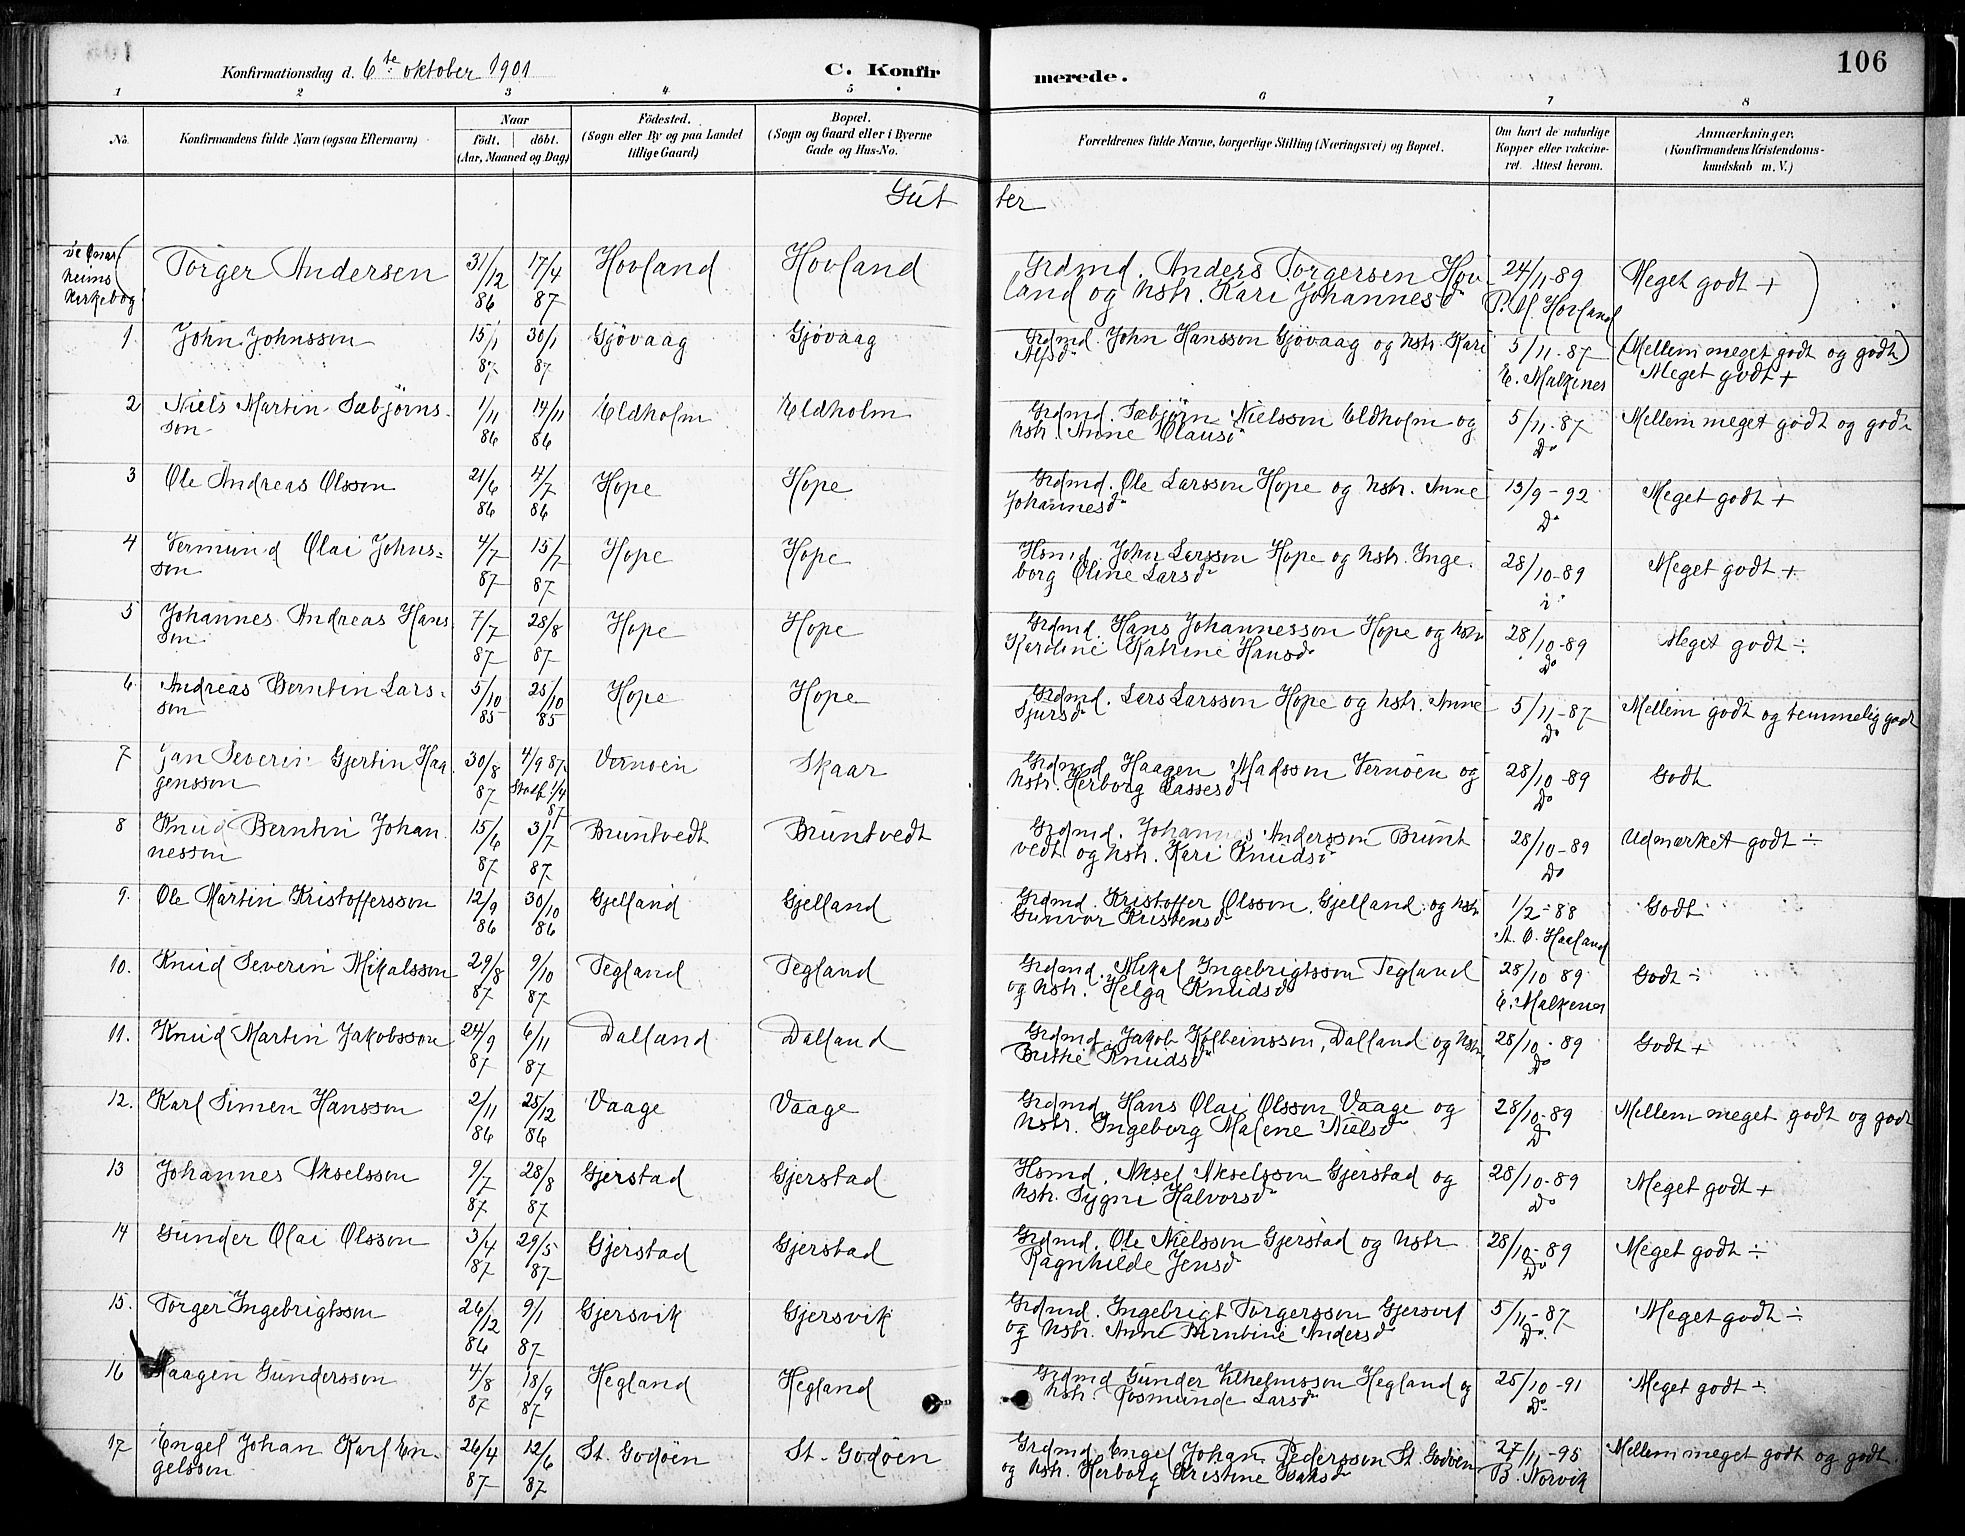 Konfirmationsdag d. 6te oktober 1901 C. Konfirmerede. 106
1 2 3 4 5 6 7 8
No. Konfirmandens fulde Navn (ogsaa Efternavn) Naar födt. döbt. (Aar, Maaned og Dag) Födested. (Sogn eller By og paa Landet tillige Gaard) Bopæl. (Sogn og Gaard eller i Byerne Gade og Hus-No. Forældrenes fulde Navne, borgerlige Stilling (Næringsvei) og Bopæl. Om havt de naturlige Kopper eller vakcineret. Attest herom. Anmærkninger. (Konfirmandens Kristendomskundskab m. V.)
Gutter
heims kirkebog Torger Andersen 31/12 86 17/4 87 Hovland Hovland Grdmd. Anders Torgersen Hovland og hstr. Kari Johannesd 24/11-89 P. M. Hovland Meget godt +
1 John Johnsson 15/1 87 30/1 87 Gjövaag Gjövaag Grdmd. John Hansson Gjövaag og hstr. Kari Alfsd 5/11-87 E. Malkenes (Mellem meget godt og godt) Meget godt +
2 Niels Martin Sæbjørnsson 1/11 86 14/11 86 Eldholm Eldholm Grdmd. Sæbjørn Nielsson Eldholm og hstr. Anne Clausd 5/11-87 Do Mellem meget godt og godt
3 Ole Andreas Olsson 21/6 86 4/7 86 Hope Hope Grdmd. Ole Larsson Hope og hstr. Anne Johannesd 13/9-92 Do Meget godt +
4 Vermund Olai Johnsson 4/7 87 15/7 87 Hope Hope Hsmd. John Larsson Hope og hstr. Ingeborg Oline Larsd 28/10-89 Meget godt +
5 Johannes Andreas Hansson 7/7 87 28/8 87 Hope Hope Grdmd. Hans Johannesson Hope og hstr Karoline Katrine Hansd 28/10-89 Do Meget godt ÷
6 Andreas Berntin Larsson 5/10 85 25/10 85 Hope Hope Grdmd. Lars Larsson Hope og hstr. Anne Sjursd 5/11-87 Do Mellem godt og temmelig godt
7 Jan Severin Gjertin Haagensson 30/8 87 4/9 87 Vernöen Skaar Grdmd Haagen Madsson Vernöen og hstr. Herborg Lassesd 28/10-89 Do Godt
8 Knud Berntin Johannesson 15/6 87 3/7 87 Bruntvedt Bruntvedt Grdmd. Johannes Andersson Bruntvedt og hstr. Kari Knudsd 28/10-89 Do Udmærket godt ÷
9. Ole Martin Kristoffersson 12/9 86 30/10 86 Gjelland Gjelland Grdmd. Kristoffer Olsson Gjelland og hstr Gunvor Kristensd 1/2-88 A. O. Haaland Godt
10. Knud Severin Mikalsson 29/8 87 9/10 87 Tegland Tegland Grdmd. Mikal Ingebrigtsson Tegland og hstr. Helga Knudsd 28/10 89 E. Malkenes Godt ÷
11. Knud Martin Jakobsson 24/9 87 6/11 87 Dalland Dalland Grdmd. Jakob Kolbeinsson, Dalland og hstr. Brithe Knudsd 28/10-89 Do Godt +
12. Karl Simen Hansson 2/11 86 25/12 86 Vaage Vaage Grdmd. Hans Olai Olsson Vaage og hstr. Ingeborg Malene Nielsd 28/10-89 Do Mellem meget godt og godt
13 Johannes Akselsson 9/7 87 28/8 87 Gjerstad Gjerstad Hsmd. Aksel Akselsson Gjerstad og hstr. Sygni Halvorsd 28/10-89 Do Meget godt +
14 Gunder Olai Olsson 3/4 87 29/5 87 Gjerstad Gjerstad Grdmd. Ole Nielsson Gjerstad og hstr Ragnhilde Jensd 28/10-89 Do Meget godt ÷
15. Torger Ingebrigtsson 26/12 86 9/1 87 Gjersvik Gjersvik Grdmd. Ingebrigt Torgersson Gjersvik og hstr. Anne Berntine Andersd 5/11-87 Do Meget godt ÷
16 Haagen Gundersson 4/8 87 18/9 87 Hegland Hegland Grdmd Gunder Vilhelmsson Hegland og hstr. Rosmunde Larsd 25/10-91 Do Meget godt ÷
17 Engel Johan Karl Engelsson 26/4 87 12/6 87 St. Godöen St. Godöen Grdmd. Engel Johan Pedersson St. Godöen og hstr. Herborg Kristine Isaksd 27/11-95 B. Norvik Mellem meget godt og godt.